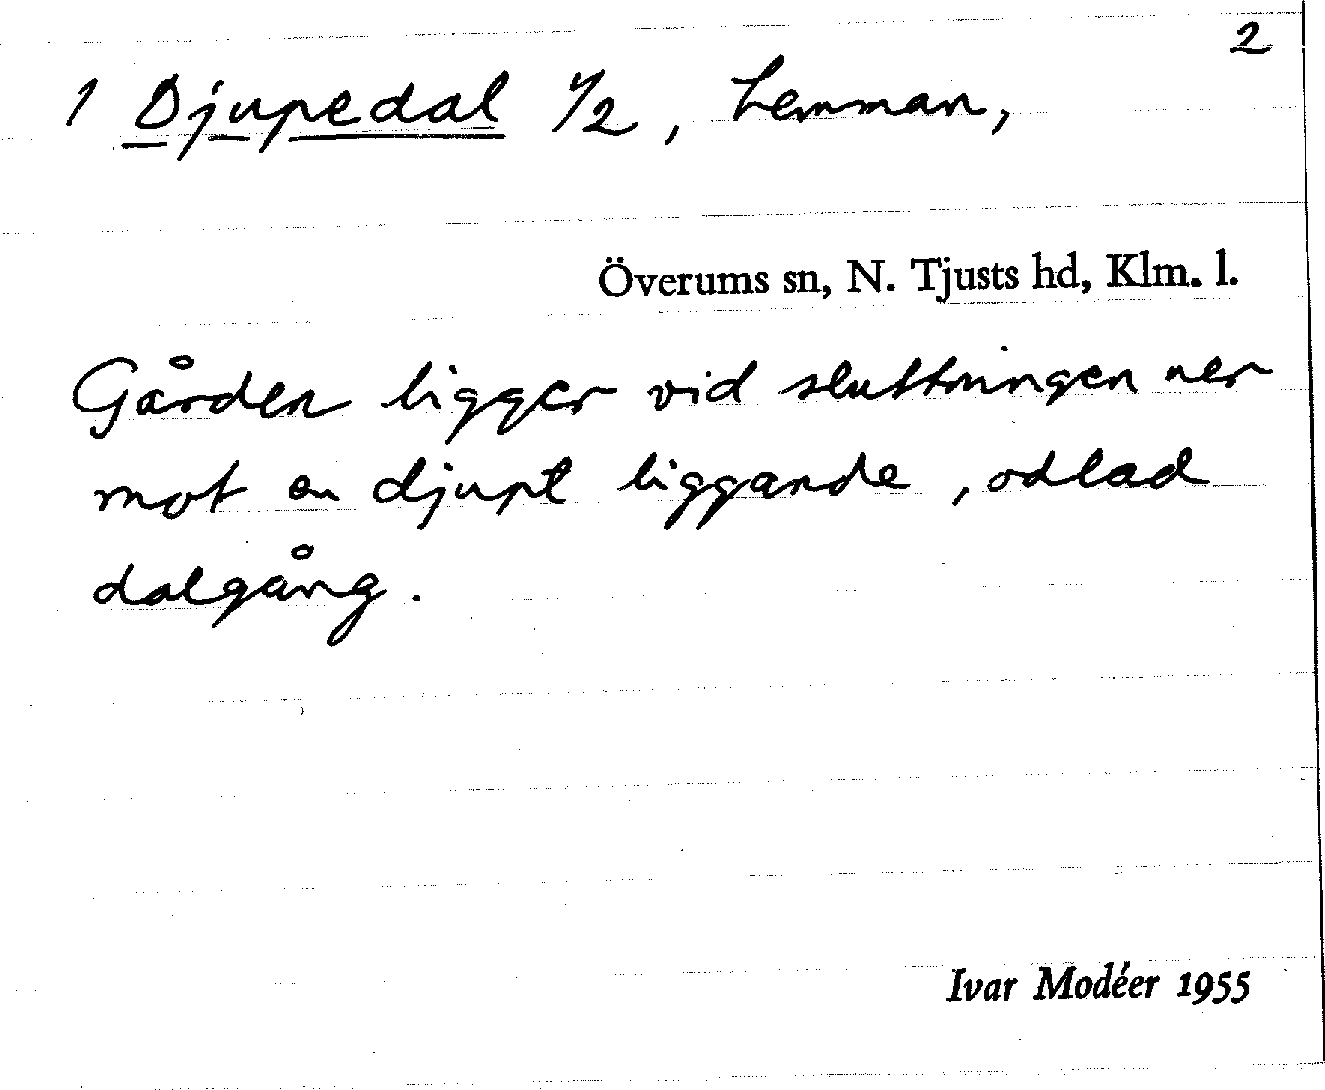 2
1 Djupedal 1/2, hemman,
Överums sn, N. Tjusts hd, Klm. l.
Gården ligger vid sluttningen ner
mot en djupt liggande, odlad
dalgång.
Ivar Modéer 1955